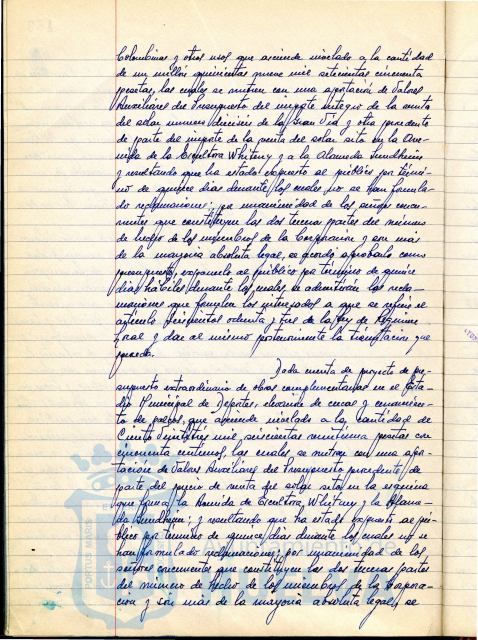 Colombinas y otros usos que asciende nivelado a la cantidad
de un millón quinientas nueve mil setecientas cincuenta
pesetas, las cuales se nutren con una aportación de Valores
Auxiliares del Presupuesto del importe íntegro de la venta
del solar número dieciseis de la Gran Vía y otra procedente
de parte del importe de la venta del solar sito en la Ave-
nida de la Escultora Whitney y a la Alameda Sundheim
y resultando que ha estado expuesto al público por térmi-
no de quince días durante los cuales no se han formula-
do reclamaciones; por unanimidad de los señores concu-
rrentes que constituyen las dos terceras partes del número
de hecho de los miembros de la Corporación y son más
de la mayoría absoluta legal, se acordó aprobarlo como
presupuesto, exponerlo al público por término de quince
días hábiles durante los cuales se admitirán las recla-
maciones que formulen los interesados a que se refiere el
artículo seiscientos ochenta y tres de la Ley de Régimen
Local y dar al mismo posteriormente la tramitación que
proceda.
Dada cuenta de proyecto de pre-
supuesto extraordinario de obras complementarias en el Esta-
dio Municipal de Deportes, elevación de cercas y
de palcos, que asciende nivelado a la cantidad de
Ciento Veintitres mil, seiscientas noventa pesetas con
cincuenta céntimos, las cuales se nutren con una apor-
tación de Valores Auxiliares del Presupuesto procedente de
parte del precio de venta del solar sito en la esquina
que forma la Avenida de Escultora Whitney y la Alame-
da Sundheim; y resultando que ha estado expuesto al pú-
blico por término de quince días durante los cuales no se
han formulado reclamaciones; por unanimidad de los
señores concurrentes que constituyen las dos terceras partes
del número de hecho de los miembros de la Corpora-
ción y son más de la mayoría absoluta legal, se
PORTUS MARIS
Ayuntamiento de